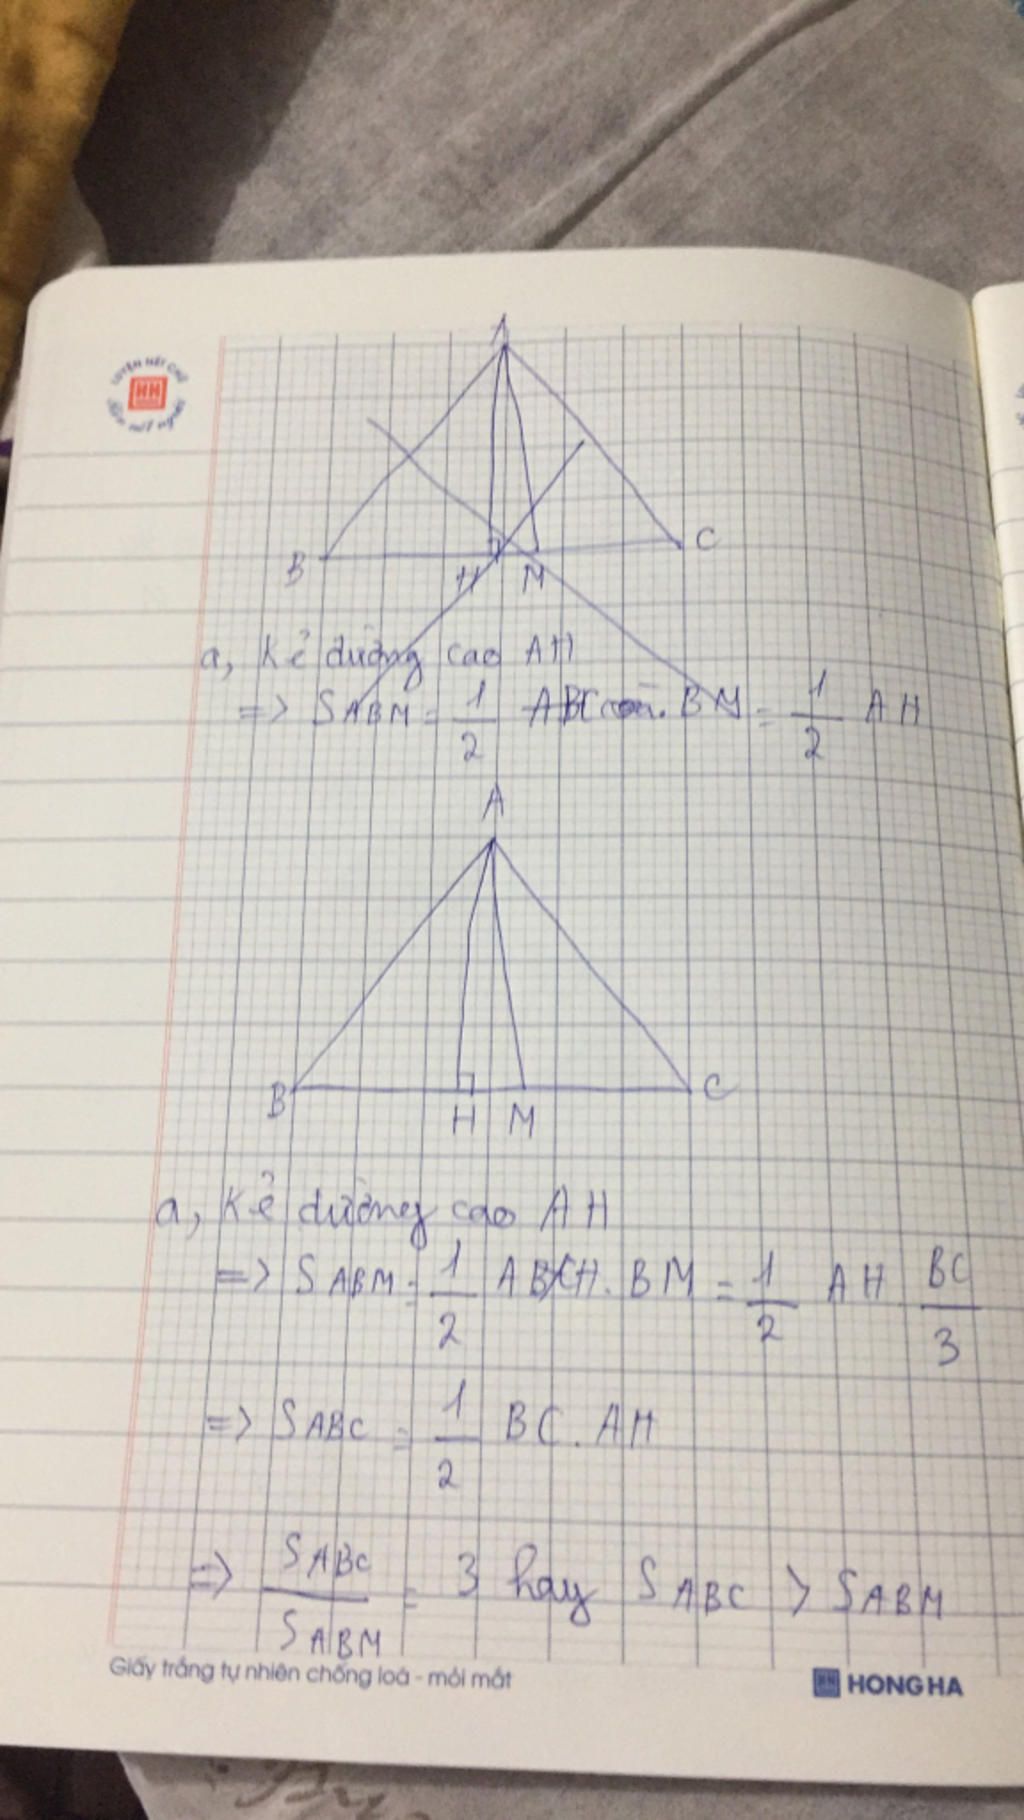 LUYỆN NÉT CHỮ
HH
Rèn nết người
A
B
H
M
C
a, Kẻ đường cao AH
=> SABM = 1/2 . BM = 1/2 AH
A
B
H
M
C
a, Kẻ đường cao AH
=> SABM = 1/2 AH . BM = 1/2 AH BC/3
=> SABC = 1/2 BC . AH
=> SABC/SABM = 3 hay SABC > SABM
Giấy trắng tự nhiên chống loá - mỏi mắt
HH HONG HA